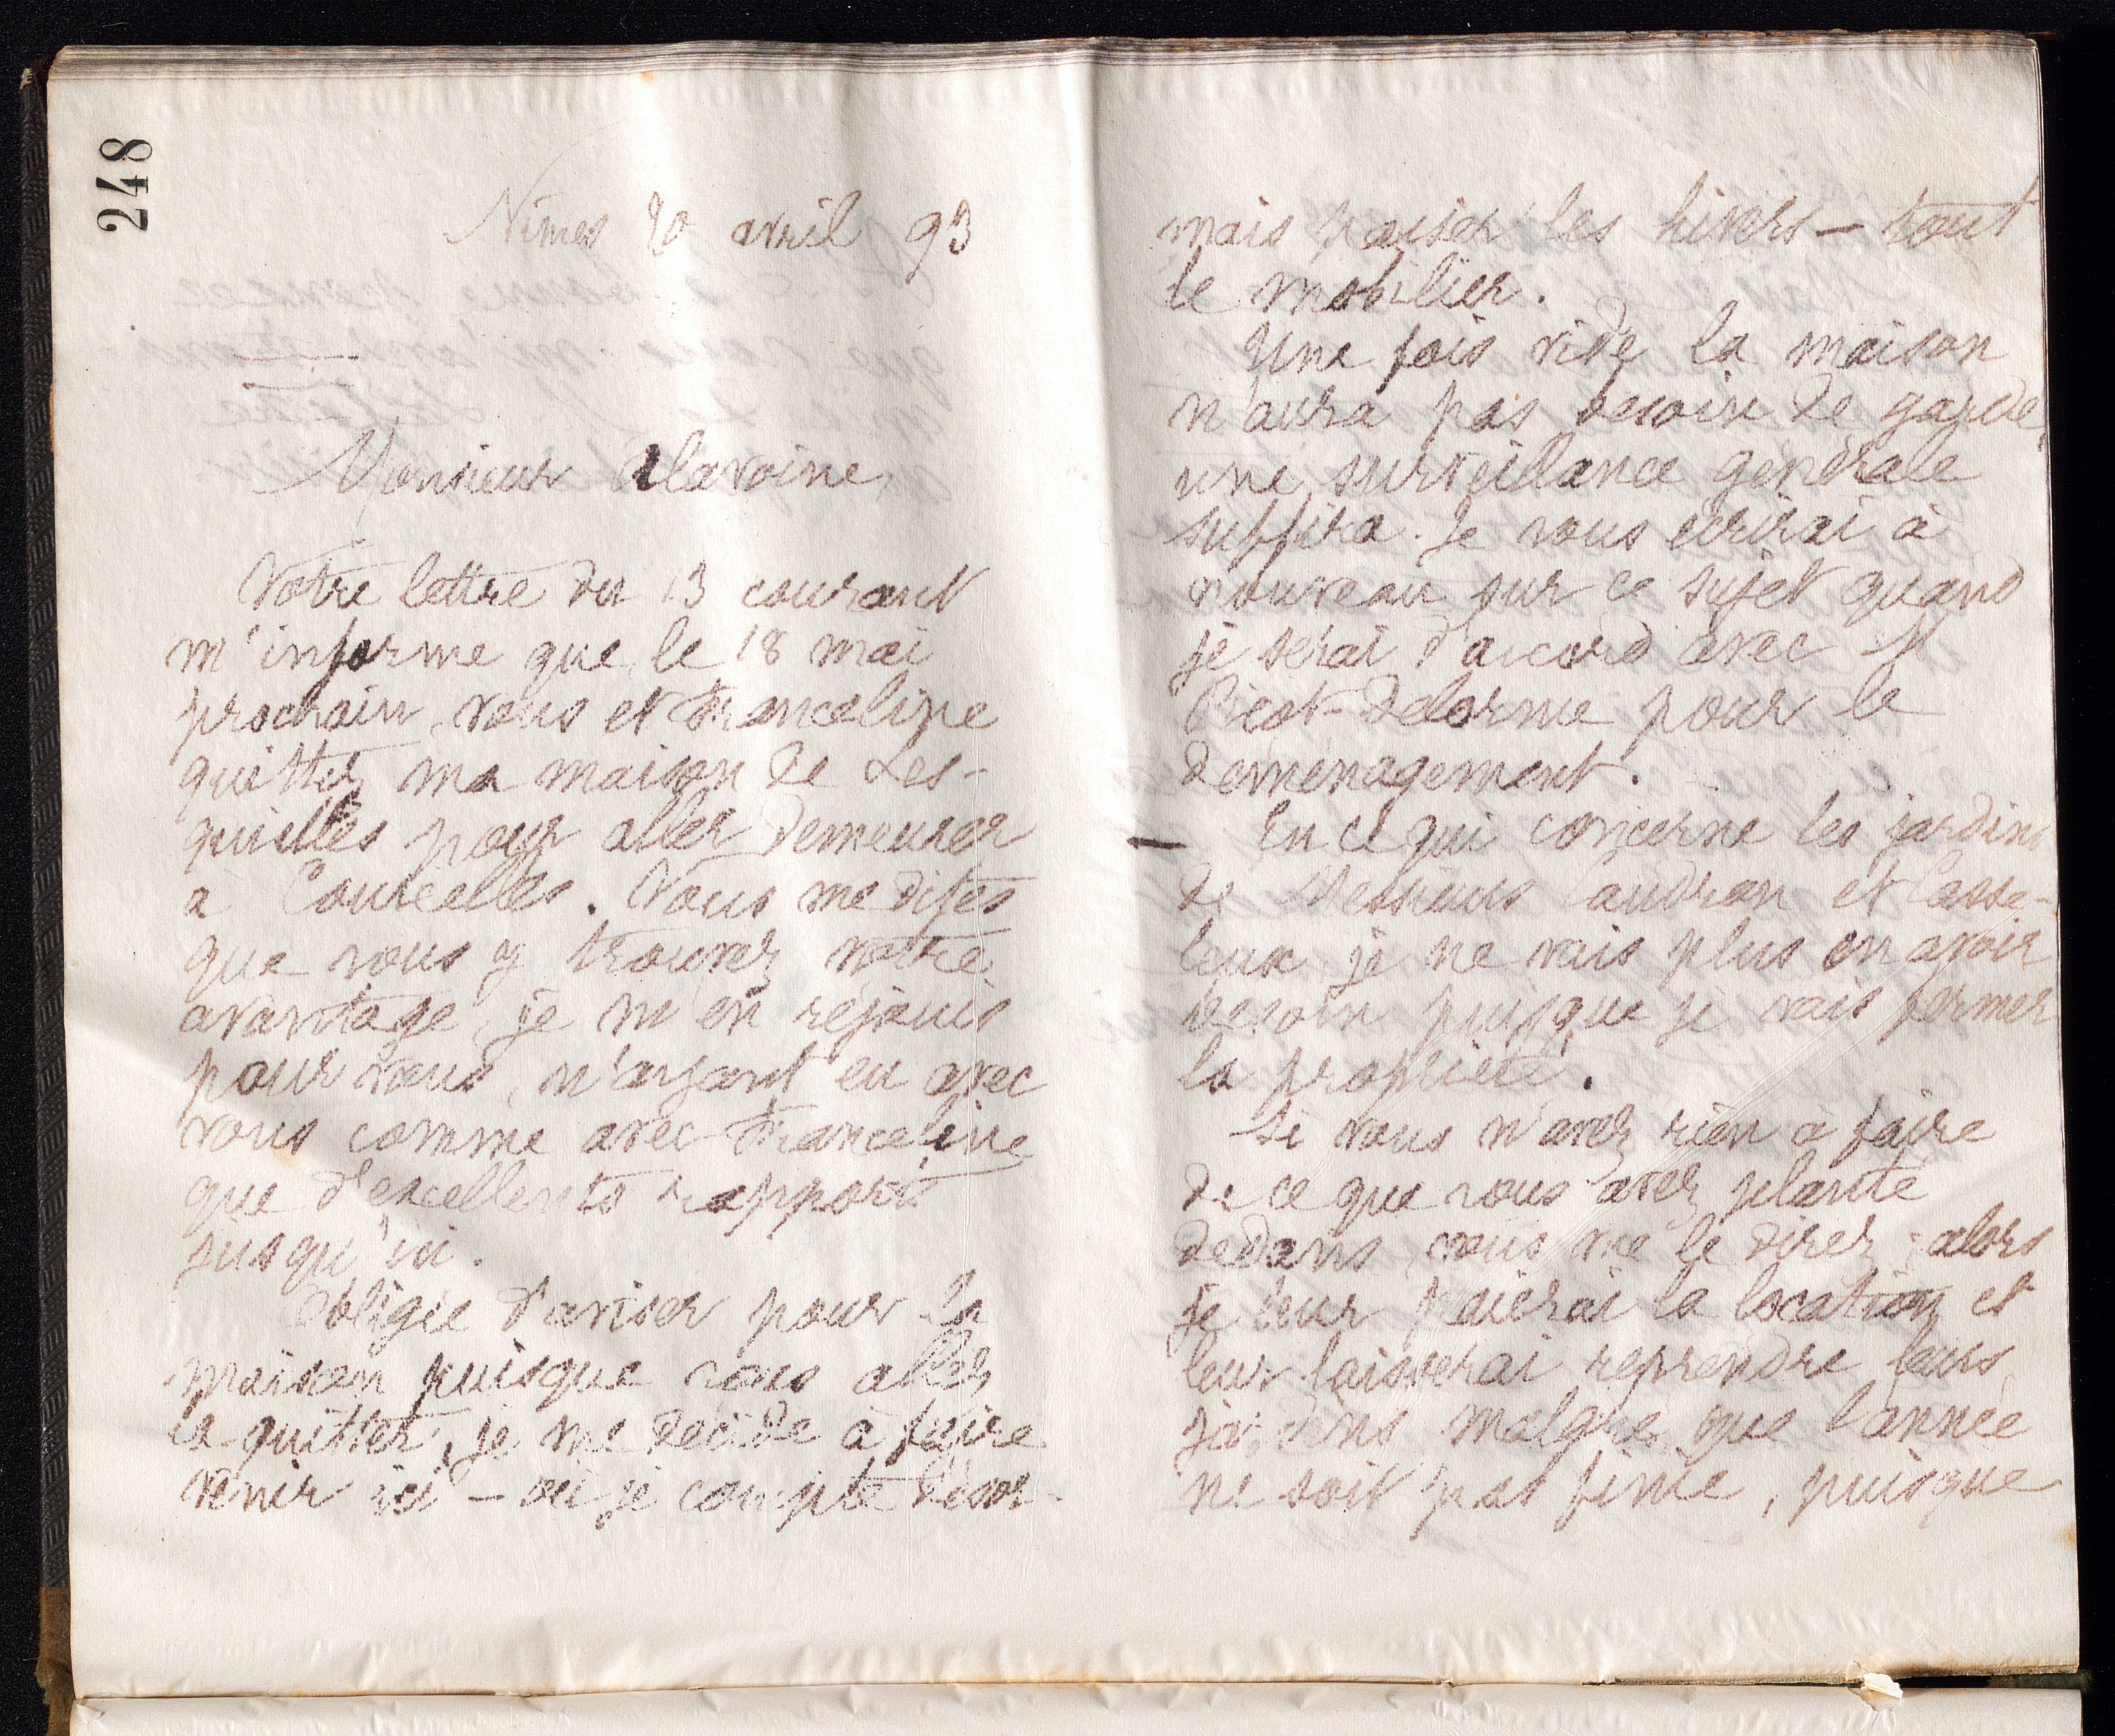 248
Nîmes 20 avril 93
Monsieur Alavoine,
Votre lettre du 13 courant
m'informe que le 18 mai
prochain, vous et Franceline
quittez ma maison de Les-
quielles pour aller demeurer
à Courcelles. Vous me dites
que vous y trouvez votre
avantage, je m'en réjouis
pour vous, n'ayant eu avec
vous comme avec Franceline
que d'excellents rapports
jusqu'ici.
Obligée d'aviser pour la
maison puisque vous allez
la quitter, je me décide à faire
venir ici – où je compte désor-
mais passer les hivers – tout
le mobilier.
Une fois vide la maison
n'aura pas besoin de garde,
une surveillance générale
suffira. Je vous écrirai à
nouveau sur ce sujet quand
je serai d'accord avec M
Picot-Delorme pour le
déménagement.
En ce qui concerne les jardins
de Messieurs Caudron et Casse-
leux, je ne vais plus en avoir
besoin puisque je vais fermer
la propriété.
Si vous n'avez rien à faire
de ce que vous avez planté
dedans vous me le direz; alors
je leur paierai la location et
leur laisserai reprendre leurs
jardins malgré que l'année
ne soit pas finie, puisque